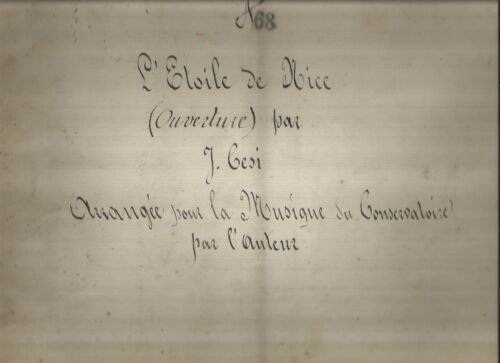 N 68
L'Etoile de Nice
(Ouverture) par
J. Cesi
Arrangée pour la Musique du Conservatoire
par l'Auteur